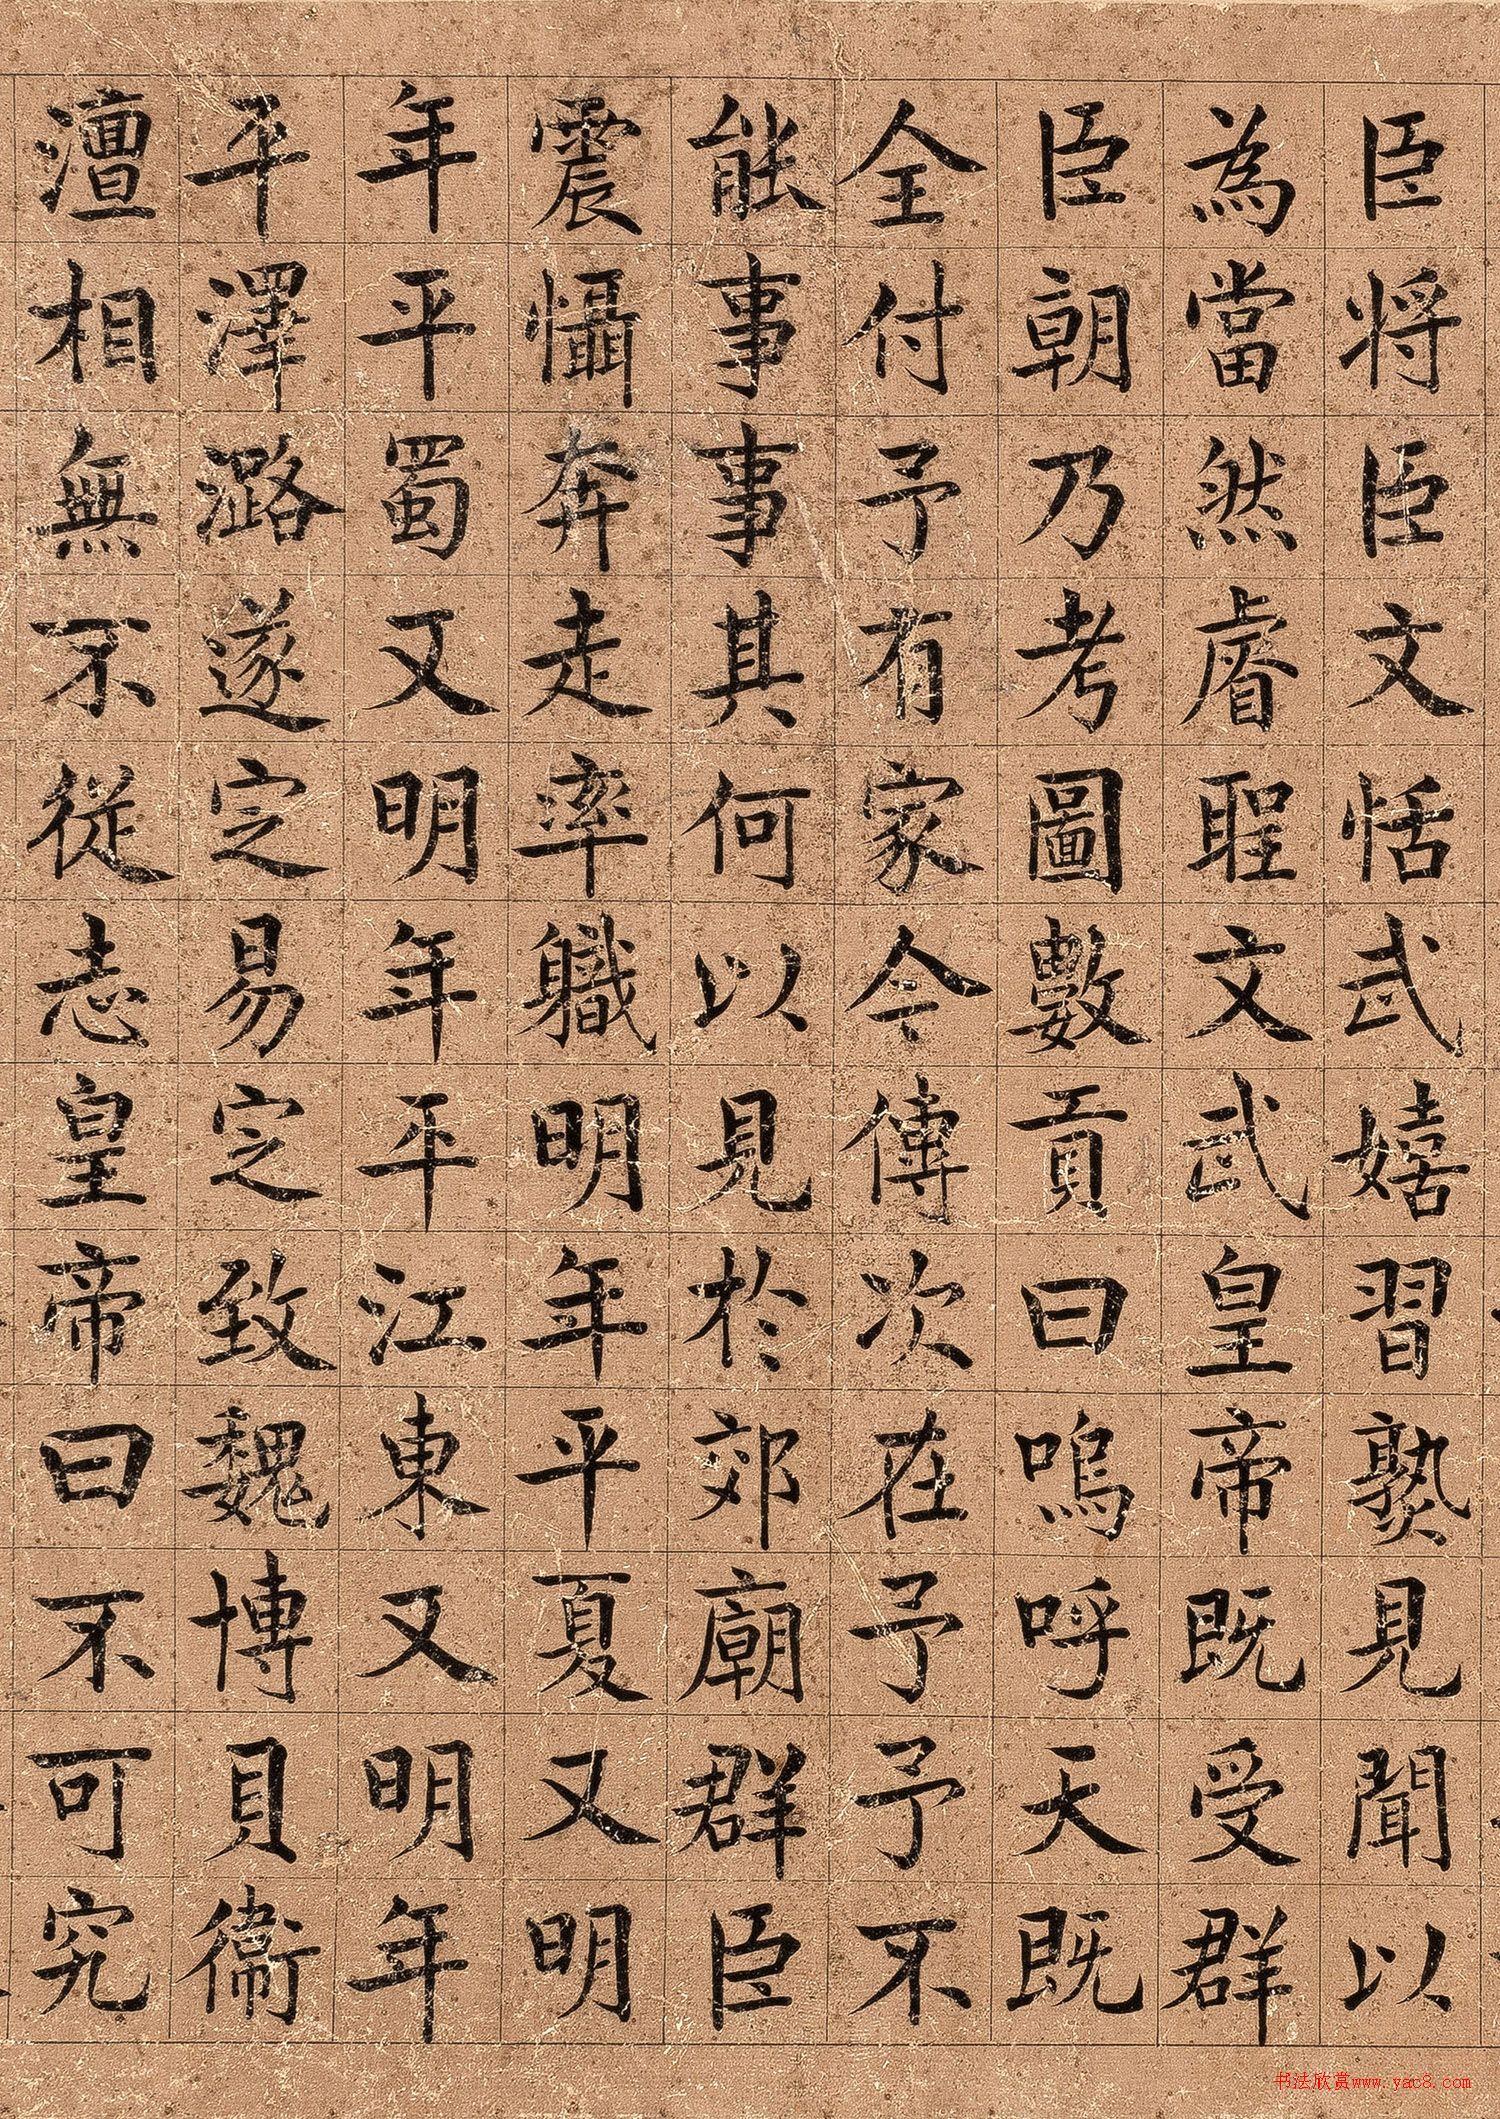 臣将臣文恬武嬉習熟見聞以
為當然睿聖文武皇帝既受群
臣朝乃考圖數貢曰嗚呼天既
全付予有家今傳次在予予不
能事事其何以見於郊廟群臣
震懾奔走率職明年平夏又明
年平蜀又明年平江東又明年
平澤潞遂定易定致魏博貝衞
澶相無不從志皇帝曰不可究
书法欣赏www.yac8.com